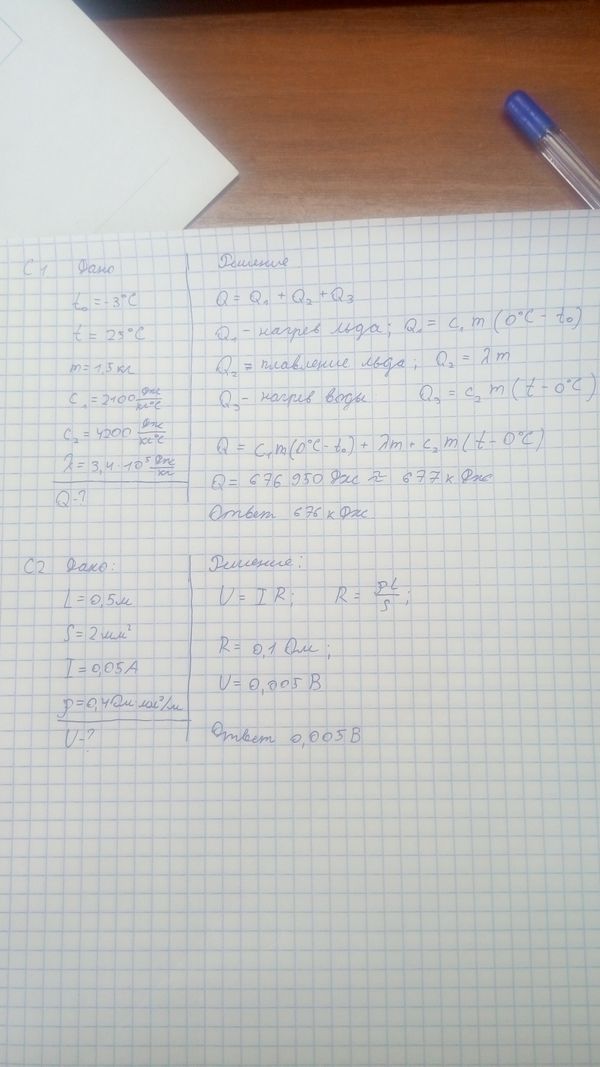 С1 Дано
t₀ = -3°C
t = 25°C
m = 1,5 кг
c₁ = 2100 Дж/кг°C
c₂ = 4200 Дж/кг°C
λ = 3,4·10⁵ Дж/кг
Q-?
Решение
Q = Q₁ + Q₂ + Q₃
Q₁ - нагрев льда; Q₁ = c₁ m (0°C - t₀)
Q₂ = плавление льда; Q₂ = λm
Q₃ - нагрев воды Q₃ = c₂ m (t - 0°C)
Q = c₁m(0°C - t₀) + λm + c₂m(t - 0°C)
Q = 676 950 Дж ≈ 677 кДж
Ответ 676 кДж
С2 Дано:
L = 0,5м
S = 2 мм²
I = 0,05A
ρ = 0,4 Ом·мм²/м
U-?
Решение:
U = I R; R = ρL/S;
R = 0,1 Ом;
U = 0,005 В
Ответ 0,005В